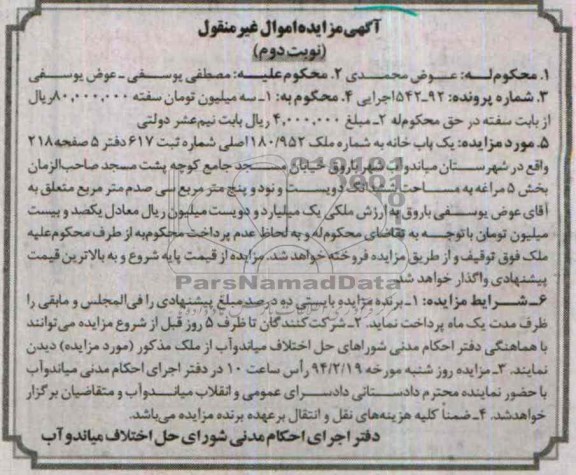 آگهی مزایده اموال غیر منقول
(نوبت دوم)
۱. محکوم‌له: عوض محمدی ۲. محکوم علیه: مصطفی یوسفی - عوض یوسفی
۳. شماره پرونده: ۹۲-۵۴۲ اجرایی ۴. محکوم به: ۱- سه میلیون تومان سفته ۸۰,۰۰۰,۰۰۰ ریال
از بابت سفته در حق محکوم‌له ۲- مبلغ ۴,۰۰۰,۰۰۰ ریال بابت نیم‌عشر دولتی
۵. مورد مزایده: یک باب خانه به شماره ملک ۱۸۰/۹۵۲ اصلی شماره ثبت ۶۱۷ دفتر ۵ صفحه ۲۱۸
واقع در شهرستان میاندوآب شهر باروق خیابان مسجد جامع کوچه پشت مسجد صاحب‌الزمان
بخش ۵ مراغه به مساحت شش دانگ دویست و نود و پنج متر مربع سی صدم متر مربع متعلق به
آقای عوض یوسفی باروق به ارزش ملکی یک میلیارد و دویست میلیون ریال معادل یکصد و بیست
میلیون تومان با توجه به تقاضای محکوم‌له و به لحاظ عدم پرداخت محکوم‌به از طرف محکوم‌علیه
ملک فوق توقیف و از طریق مزایده فروخته خواهد شد. مزایده از قیمت پایه شروع و به بالاترین قیمت
پیشنهادی واگذار خواهد شد
۶- شرایط مزایده: ۱- برنده مزایده بایستی ده درصد مبلغ پیشنهادی را فی‌المجلس و مابقی را
ظرف مدت یک ماه پرداخت نماید. ۲- شرکت‌کنندگان تا ظرف ۵ روز قبل از شروع مزایده می‌توانند
با هماهنگی دفتر احکام مدنی شوراهای حل اختلاف میاندوآب از ملک مذکور (مورد مزایده) دیدن
نمایند. ۳- مزایده روز شنبه مورخه ۹۴/۲/۱۹ رأس ساعت ۱۰ در دفتر اجرای احکام مدنی میاندوآب
با حضور نماینده محترم دادستانی دادسرای عمومی و انقلاب میاندوآب و متقاضیان برگزار
خواهدشد. ۴- ضمناً کلیه هزینه‌های نقل و انتقال بر عهده برنده مزایده می‌باشد.
دفتر اجرای احکام مدنی شورای حل اختلاف میاندوآب
ParsNamadData